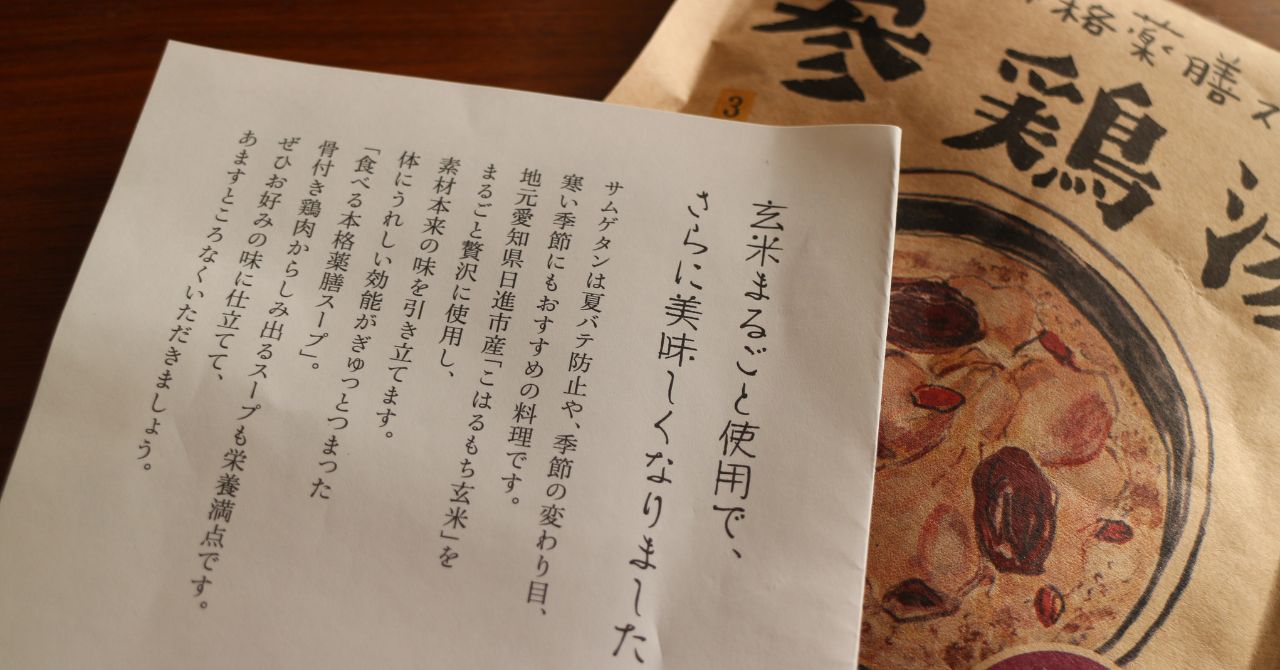 玄米まるごと使用で、
さらに美味しくなりました
サムゲタンは夏バテ防止や、
寒い季節にもおすすめの料理です。季節の変わり目、
地元愛知県日進市産「こはるもち玄米」を
まるごと贅沢に使用し、
素材本来の味を引き立てます。
体にうれしい効能がぎゅっとつまった
「食べる本格薬膳スープ」。
骨付き鶏肉からしみ出るスープも栄養満点です。
ぜひお好みの味に仕立てて、
あますところなくいただきましょう。
格薬膳ス
参鶏湯
3